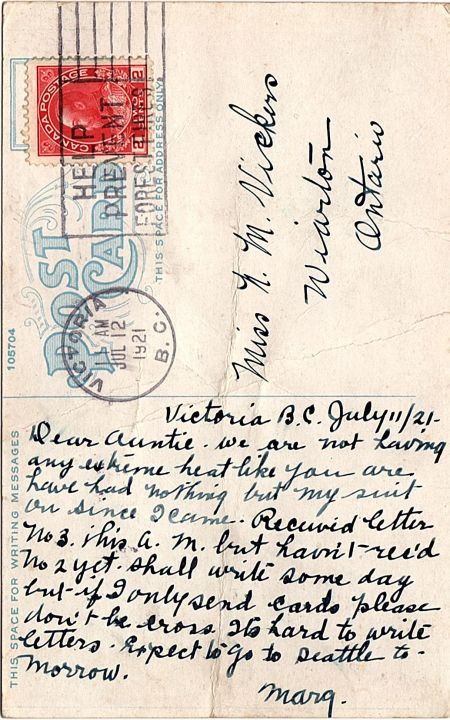 CANADA POSTAGE
2 CENTS 2
HELP
PREVENT
FOREST FIRES
THIS SPACE FOR ADDRESS ONLY
POST
CARD
VICTORIA
AM
JUL 12
1921
B.C.
105704
Miss K. M. Vickers
Wiarton
Ontario
THIS SPACE FOR WRITING MESSAGES
Victoria B.C. July 11/21-
Dear Auntie. We are not having
any extreme heat like you are
have had nothing but my suit
on since I came. Received letter
No 3. this A. M. but havn't rec'd
No 2 yet. Shall write some day
but if I only send cards please
don't be cross. Its hard to write
letters. Expect to go to Seattle to-
morrow.
Marg.